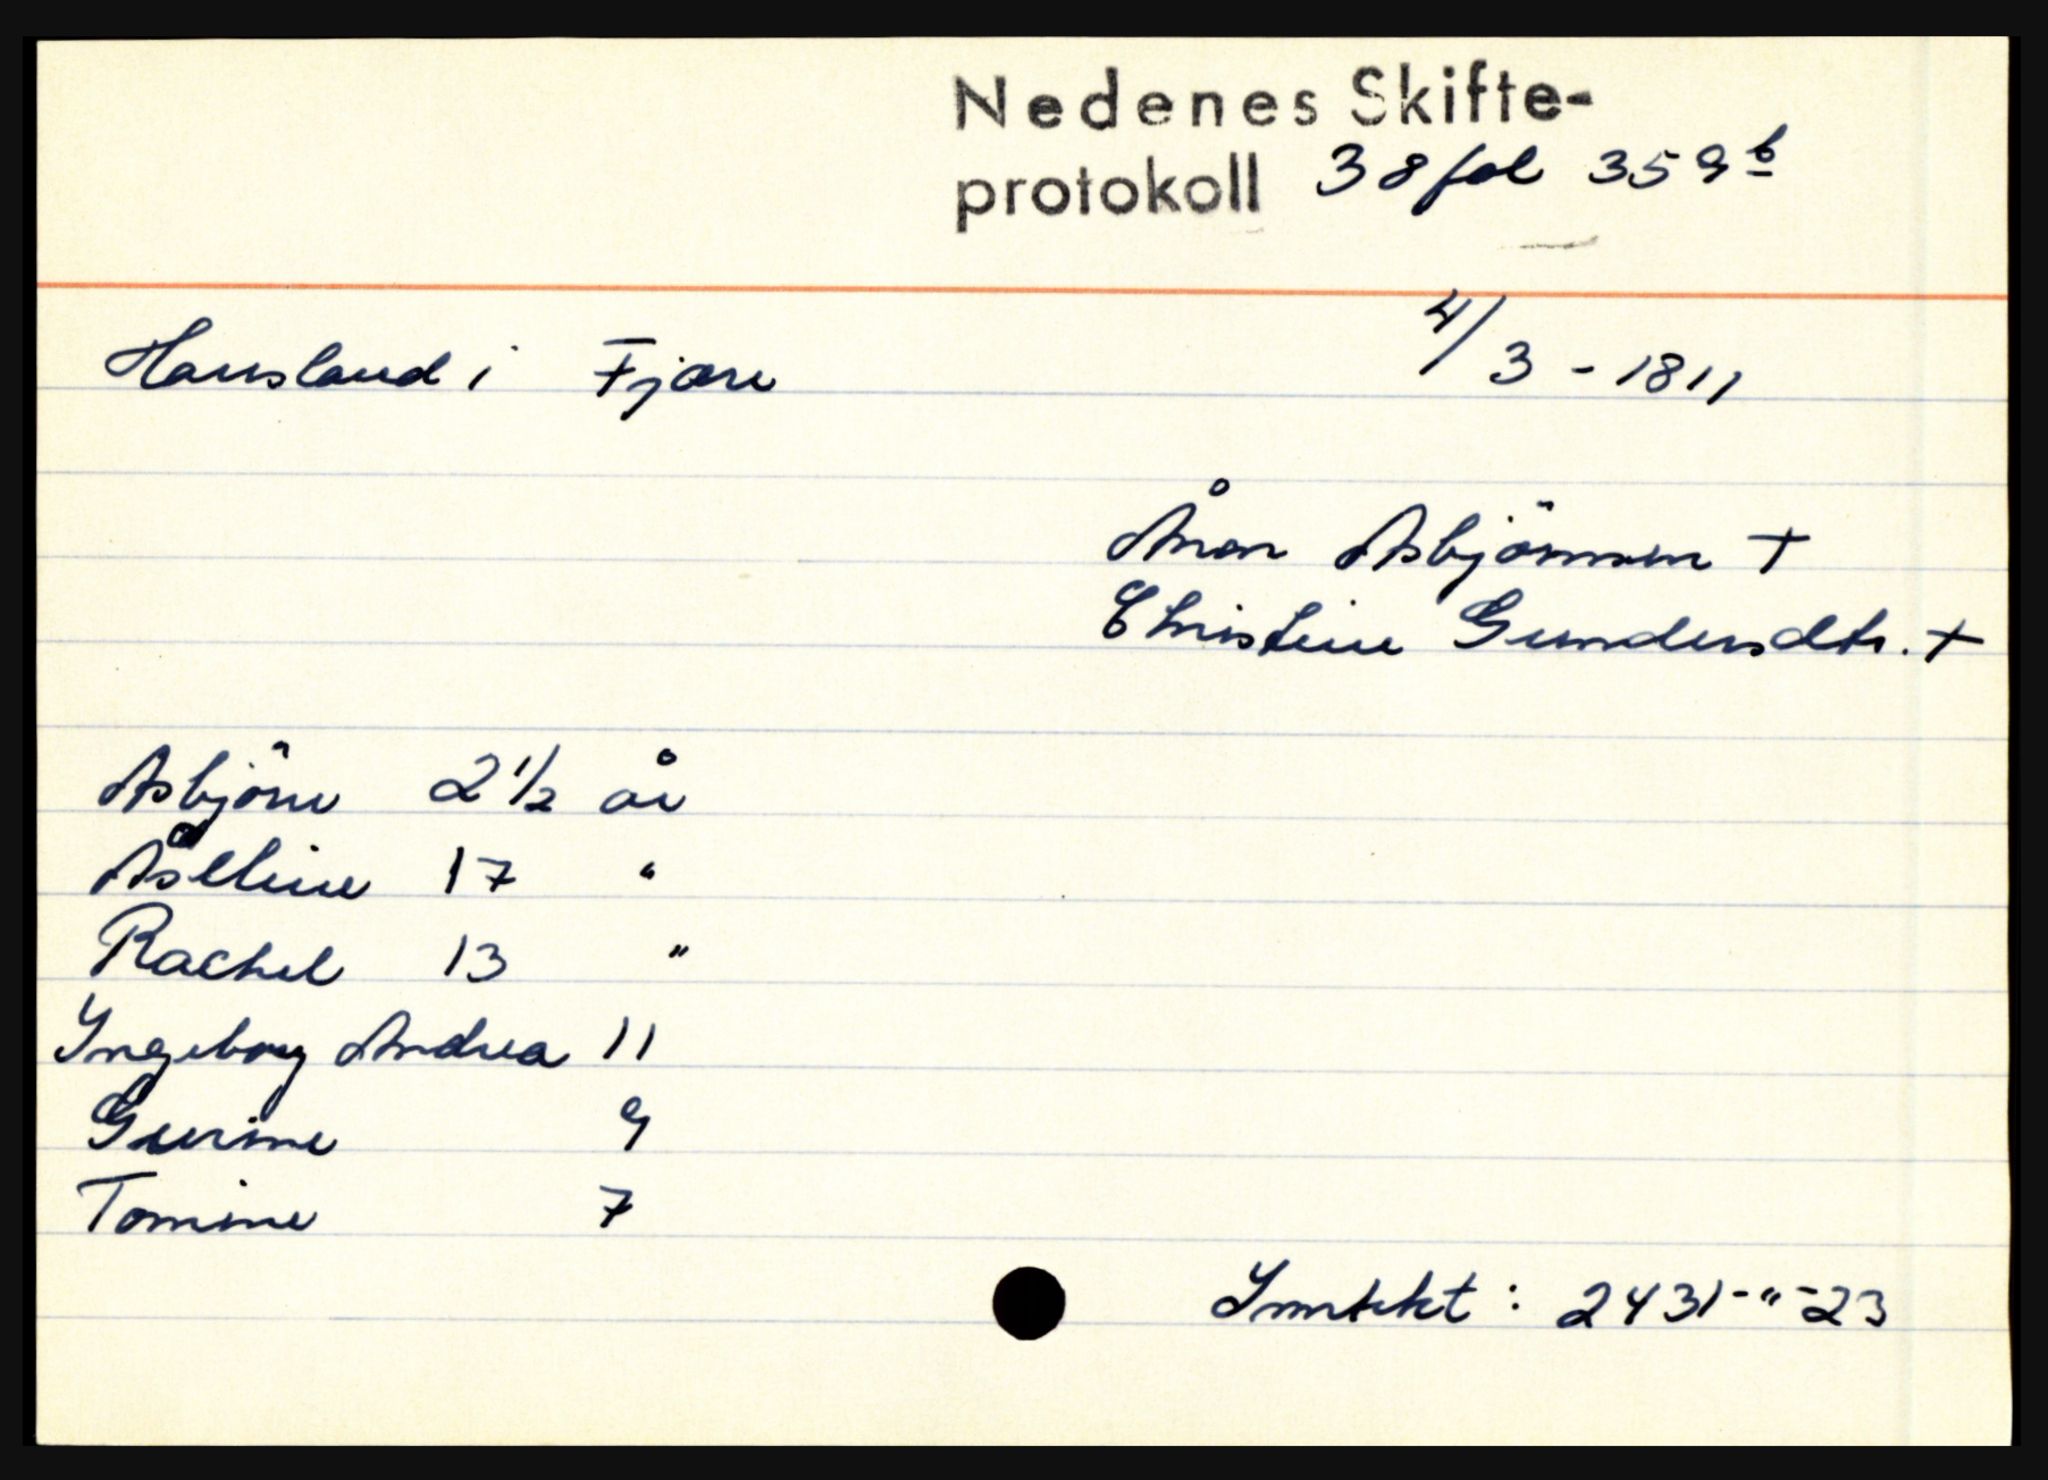 Nedenes Skifte-
protokoll 38 fol 359 b
Hausland i Fjære 4/3 - 1811
Ånon Asbjörnsen +
Christine Gundersdtr. +
Asbjörn 2 1/2 år
Åseline 17 "
Rachel 13 "
Yngeborg Andrea 11
Gurine 9
Tomine 7
Inntekt : 2431-"-23